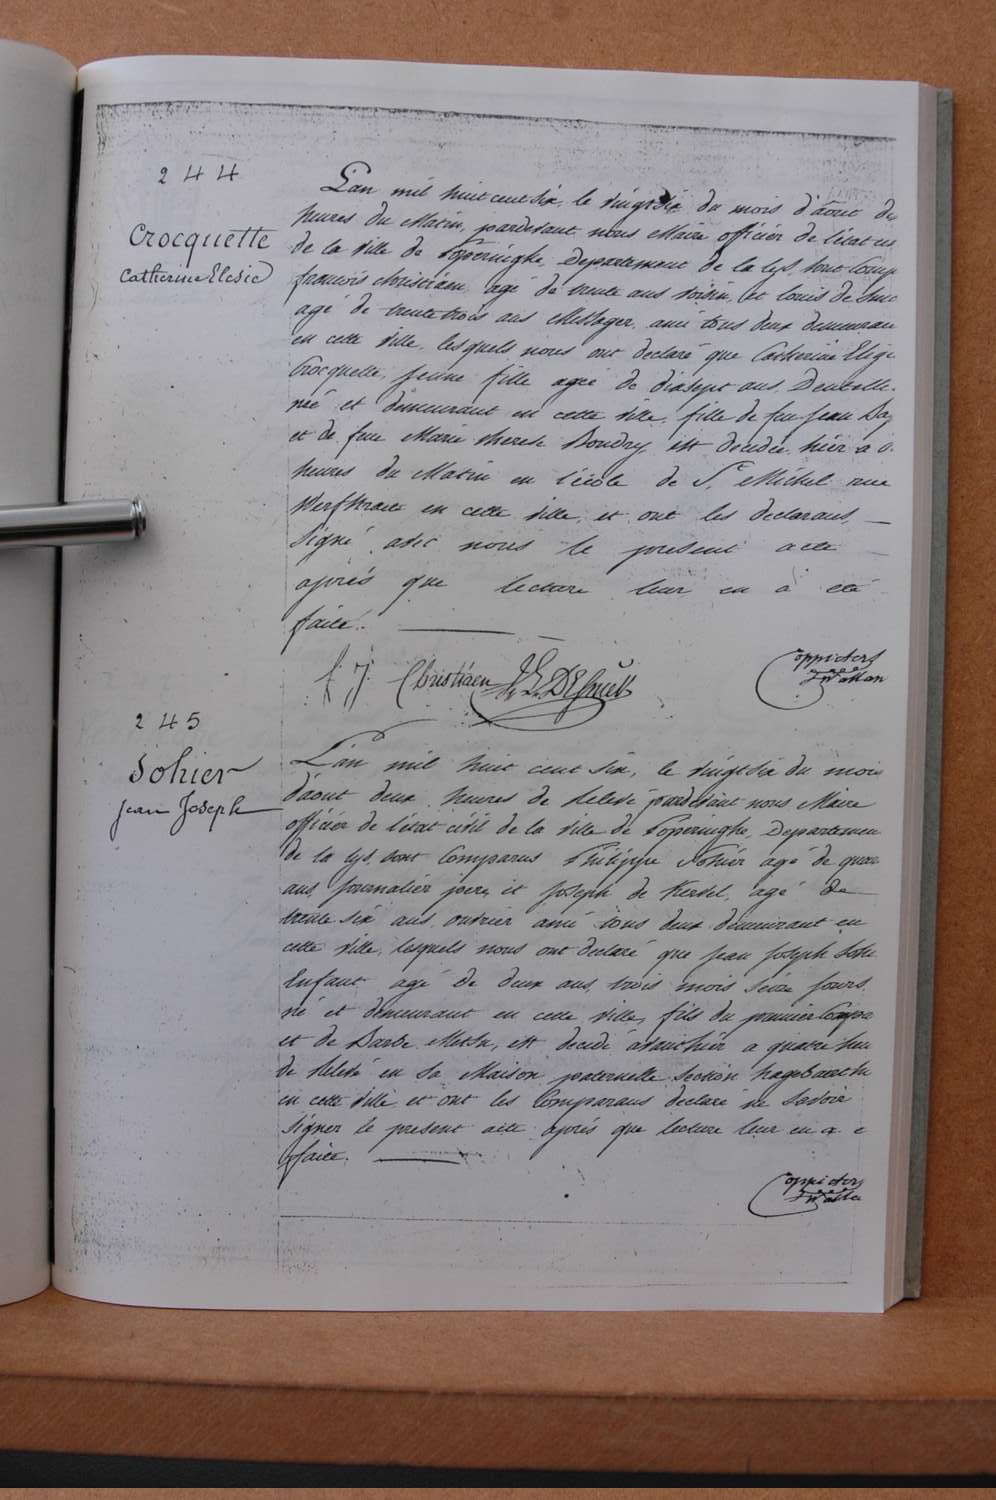 244
Crocquette
Catherine Elesie
L'an mil huit cent six, le vingt six du mois d'aout
heures du Matin, pardevant nous Maire officier de l'état
de la ville de Poperinghe, Departement de la Lys, sont Comp
francois Christiaen, agé de trente ans voisin, et louis de Smc
agé de trente trois ans Messager, ami tous deux demeuran
en cette ville, lesquels nous ont declaré que Catherine
Crocquette, jeune fille agée de dixsept ans, Dentelle
née et demeurant en cette ville, fille de feu Jean
et de feue Marie therese Boudry, est decedée hier a
heures du Matin en l'école de St. Michel rue
en cette ville, et ont les declarans
Signé avec nous le present acte
aprés que lecture leur en a été
faite.
f. J. Christiaen
Coppieters
245
Sohier
Jean Joseph
L'an mil huit cent six, le vingt six du mois
d'aout deux heures de relevé pardevant nous Maire
officier de l'état civil de la ville de Poperinghe, Departemen
de la Lys, sont Comparus Philippe Sohier agé de quar
ans, journalier pere, et Joseph de Kervel, agé de
trente six ans, ouvrier ami tous deux demeurant en
cette ville, lesquels nous ont declaré que Jean Joseph Sohi
Enfant agé de deux ans, trois mois seize jours,
né et demeurant en cette ville, fils du premier Compa
et de Barbe Metsu, est decedé avanthier a quatre heu
de relevé en sa Maison paternelle section
en cette ville et ont les Comparans declaré ne savoir
signer le present acte aprés que lecture leur en a e
faite.
Coppieters